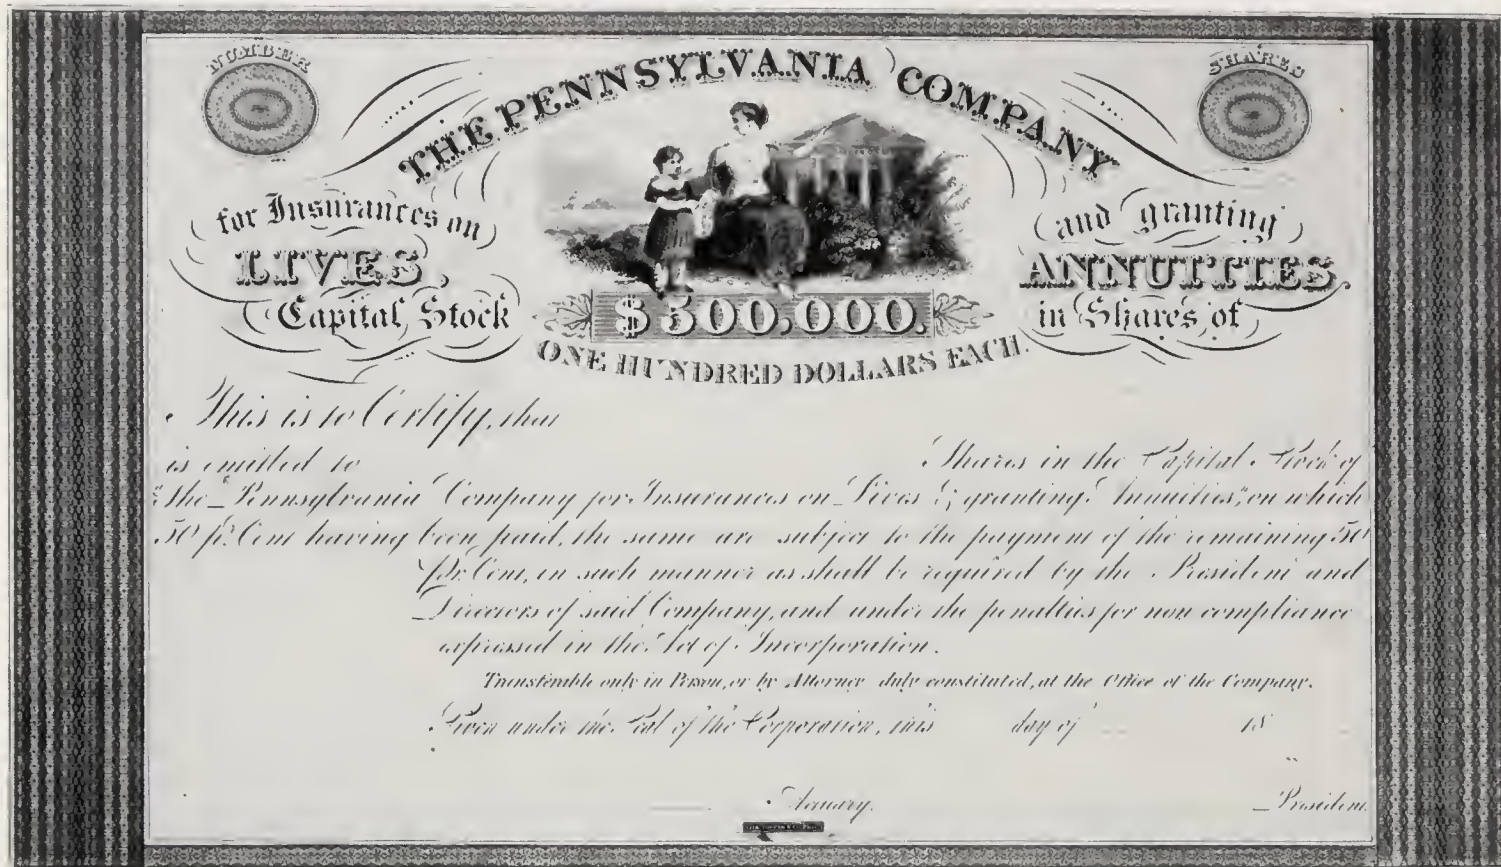 NUMBER
SHARES
THE PENNSYLVANIA COMPANY
for Insurances on
LIVES,
Capital Stock
and granting
ANNUITIES,
in Shares of
$500,000.
ONE HUNDRED DOLLARS EACH.
This is to Certify, that
is entitled to Shares in the Capital Stock of
"the Pennsylvania Company for Insurances on Lives & granting Annuities," on which
50 pr. Cent having been paid, the same are subject to the payment of the remaining 50
Pr. Cent, in such manner as shall be required by the President and
Directors of said Company, and under the penalties for non compliance
expressed in the Act of Incorporation.
Transferable only in Person, or by Attorney duly constituted, at the Office of the Company.
Given under the Seal of the Corporation, this day of 18
Actuary.
President